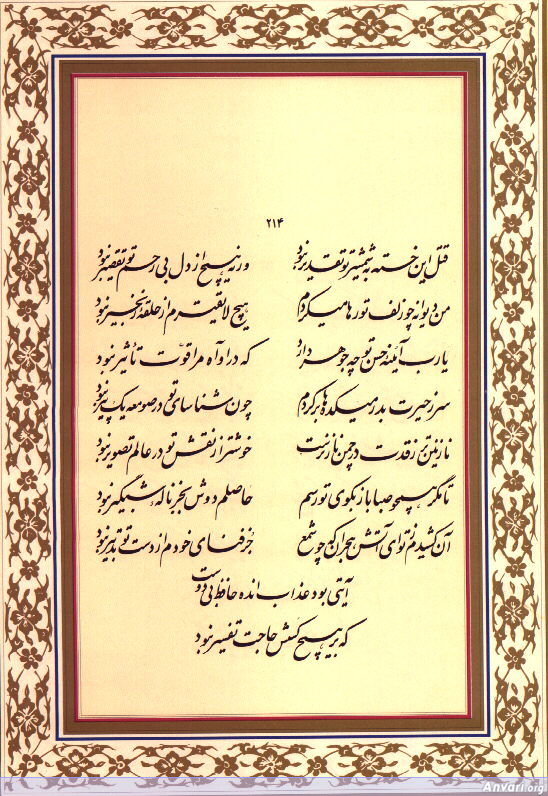 ۲۱۴
قتل این خسته به شمشیر تو تقدیر نبود ورنه هیچ از دل بی رحم تو تقصیر نبود
من دیوانه چو زلف تو رها میکردم هیچ لایقترم از حلقه زنجیر نبود
یارب آئینه حسن تو چه جوهر دارد که در او آه مرا قوّت تأثیر نبود
سر ز حیرت بدر میکده ها برکردم چون شناسای تو در صومعه یک پیر نبود
نازنین تر ز قدت در چمن ناز نرست خوشتر از نقش تو در عالم تصویر نبود
تا مگر همچو صبا باز بکوی تو رسم حاصلم دوش بجز ناله شبگیر نبود
آن کشیدم ز تو ای آتش هجران که چو شمع جز فنای خودم از دست تو تدبیر نبود
آیتی بود عذاب انده حافظ بی دوست
که بر هیچ کسش حاجت تفسیر نبود
Anvari.org